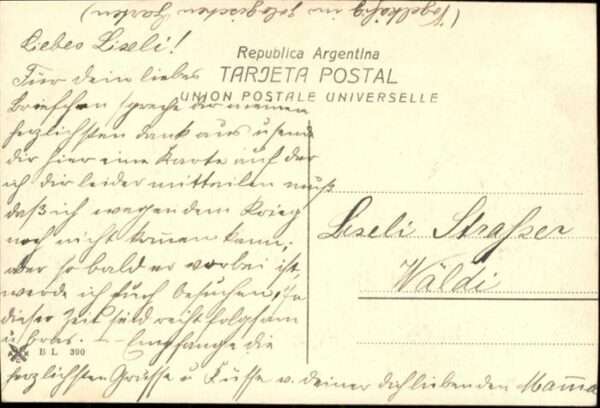 (Vogelkäfig im zologischen Garten)
Liebes Liseli!
Für dein liebes
Briefchen spreche dir meinen
herzlichsten Dank aus u sende
dir hier eine Karte auf der
ich dir leider mitteilen muß
daß ich wegen dem Krieg
noch nicht kommen kann,
aber so bald er vorbei ist,
werde ich Euch besuchen, In
dieser Zeit seid recht folgsam
u brav. — Empfange die
herzlichsten Grüsse u Küsse v. deiner dich liebenden Mama
Republica Argentina
TARJETA POSTAL
UNION POSTALE UNIVERSELLE
Liseli Strasser
Wäldi
B L 390